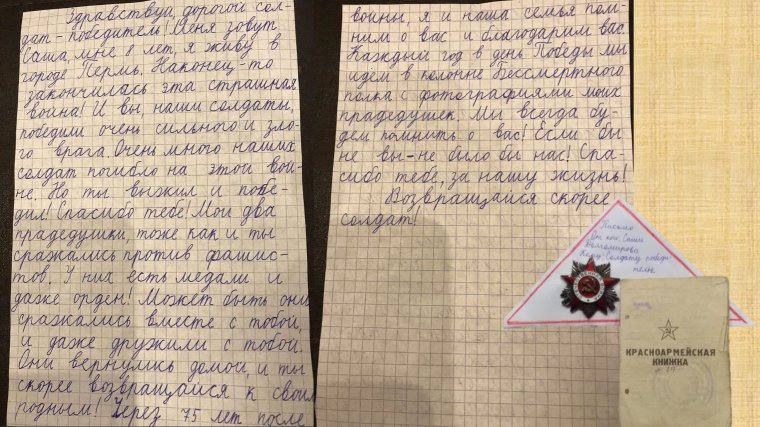 Здравствуй, дорогой сол-
дат-победитель! Меня зовут
Саша, мне 8 лет, я живу в
городе Пермь. Наконец-то
закончилась эта страшная
война! И вы, наши солдаты,
победили очень сильного и зло-
го врага. Очень много наших
солдат погибло на этой вой-
не. Но ты выжил и побе-
дил! Спасибо тебе! Мои два
прадедушки, тоже как и ты
сражались против фашис-
тов. У них есть медали и
даже орден! Может быть они
сражались вместе с тобой,
и даже дружили с тобой.
Они вернулись домой, и ты
скорее возвращайся к своим
родным! Через 75 лет после
войны, я и наша семья пом-
ним о вас и благодарим вас.
Каждый год в день Победы мы
идем в колонне Бессмертного
полка с фотографиями моих
прадедушек. Мы всегда бу-
дем помнить о вас! Если бы
не вы-не было бы нас! Спа-
сибо тебе, за нашу жизнь!
Возвращайся скорее
солдат!
Письмо
От кого: Саши
Кому: Солдату победи-
телю
КРАСНОАРМЕЙСКАЯ
КНИЖКА